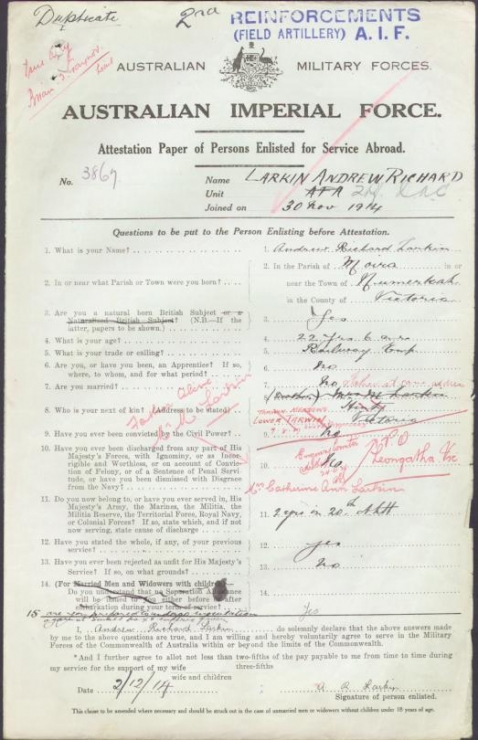 Duplicate
2nd REINFORCEMENTS
(FIELD ARTILLERY) A. I. F.
AUSTRALIAN MILITARY FORCES.
AUSTRALIAN IMPERIAL FORCE.
Attestation Paper of Persons Enlisted for Service Abroad.
No. 3867
Name LARKIN ANDREW RICHARD
Unit
Joined on 30 Nov 1914
Questions to be put to the Person Enlisting before Attestation.
1. What is your Name? 1. Andrew Richard Larkin
2. In or near what Parish or Town were you born? 2. In the Parish of Moira in or
near the Town of Numurkah
in the County of Victoria
3. Are you a natural born British Subject or a
Naturalised British Subject? (N.B.—If the
latter, papers to be shown.) 3. Yes
4. What is your age? 4. 22 yrs 6
5. What is your trade or calling? 5. Railway Emp
6. Are you, or have you been, an Apprentice? If so,
where, to whom, and for what period? 6. No
7. Are you married? 7. No
8. Who is your next of kin? (Address to be stated) 8. (Mother) Mrs Larkin
Victoria
Father Alive
Larkin
P.O
Leongatha Vic
9. Have you ever been convicted by the Civil Power? 9. No
10. Have you ever been discharged from any part of His
Majesty's Forces, with Ignominy, or as Incor-
rigible and Worthless, or on account of Conviction
of Felony, or of a Sentence of Penal Servi-
tude, or have you been dismissed with Disgrace
from the Navy? 10. No
Mrs Catherine Ann Larkin
11. Do you now belong to, or have you ever served in, His
Majesty's Army, the Marines, the Militia, the
Militia Reserve, the Territorial Force, Royal Navy,
or Colonial Forces? If so, state which, and if not
now serving, state cause of discharge 11. 2 yrs in 20th
12. Have you stated the whole, if any, of your previous
service? 12. Yes
13. Have you ever been rejected as unfit for His Majesty's
Service? If so, on what grounds? 13. No
14. (For Married Men and Widowers with children)
Do you understand that no Separation Allowance
will be issued to you either before or after
embarkation during your term of service? 14.
15 are you prepared to undergo inoculation
Yes
I, Andrew Richard Larkin do solemnly declare that the above answers made
by me to the above questions are true, and I am willing and hereby voluntarily agree to serve in the Military
Forces of the Commonwealth of Australia within or beyond the limits of the Commonwealth.
*And I further agree to allot not less than two-fifths of the pay payable to me from time to time during
three-fifths
my service for the support of my wife
wife and children
Date 2/12/14 A R Larkin
Signature of person enlisted.
This clause to be amended where necessary and should be struck out in the case of unmarried men or widowers without children under 18 years of age.